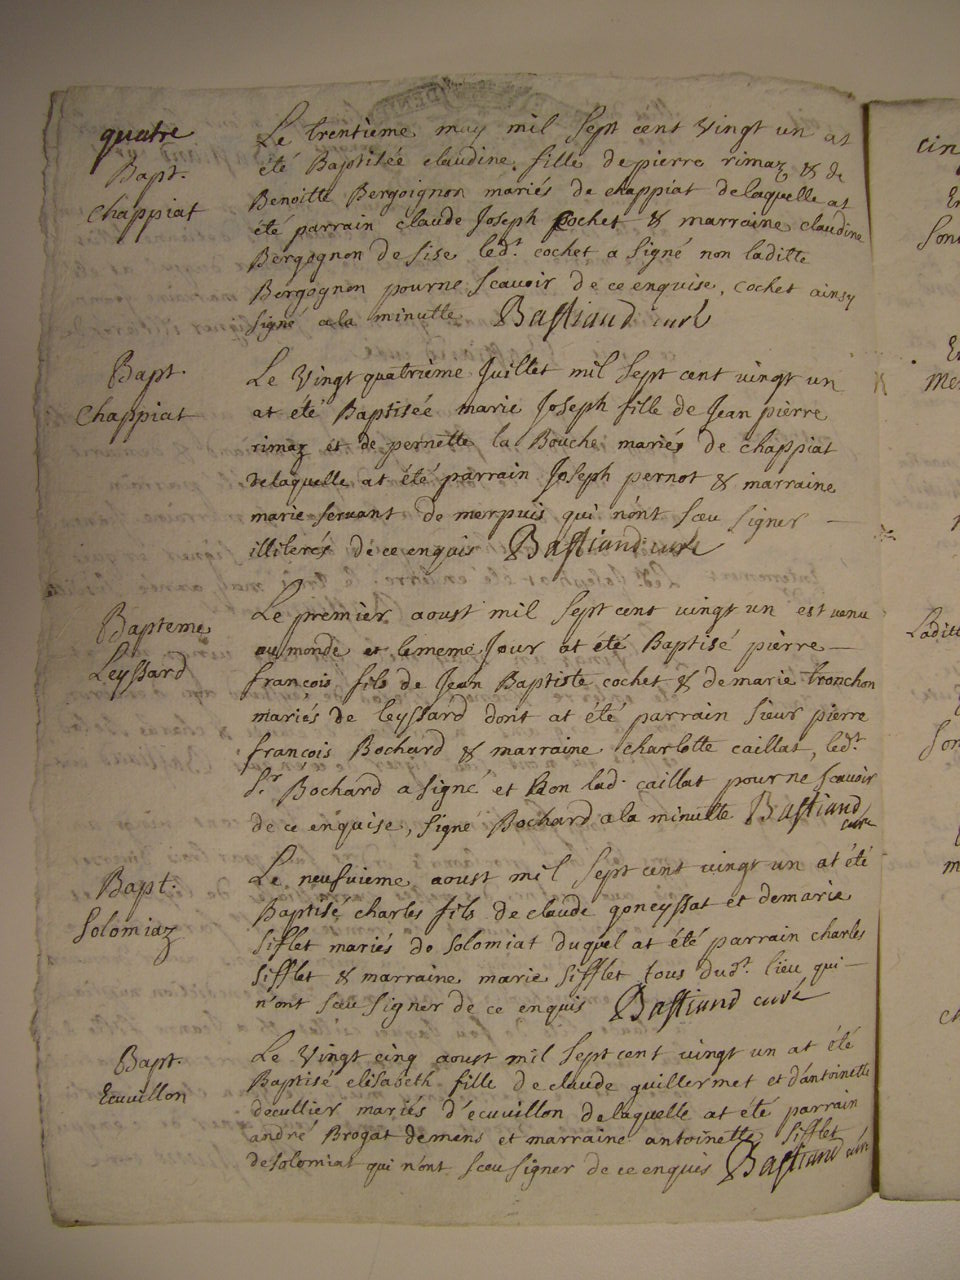 quatre
Bapt.
Chappiat
Le trentieme may mil sept cent vingt un at
été Baptisée claudine fille de pierre rimaz & de
Benoitte Bergoignon mariés de chappiat de laquelle at
été parrain claude Joseph cochet & marraine claudine
Bergognon de sise led.t cochet a signé non laditte
Bergognon pour ne scavoir de ce enquise, cochet ainsy
signé a la minutte Bastiand curé
Bapt.
Chappiat
Le vingt quatrième Juillet mil sept cent vingt un
at été Baptisée marie Joseph fille de Jean pierre
rimaz et de pernette la Bouche mariés de chappiat
de laquelle at été parrain Joseph pernot & marraine
marie servant de merpuis qui n'ont sceu signer —
illiterés de ce enquis Bastiand curé
Bapteme
Leyssard
Le premier aoust mil sept cent vingt un est venu
au monde et le meme Jour at été Baptisé pierre —
françois fils de Jean Baptiste cochet & de marie tronchon
mariés de leyssard dont at été parrain sieur pierre
françois Bochard & marraine charlotte caillat, led.t
S.r Bochard a signé et non lad. caillat pour ne scavoir
de ce enquise, signé Bochard a la minutte Bastiand
curé
Bapt.
Solomiaz
Le neufvieme aoust mil sept cent vingt un at été
Baptisé charles fils de claude goneyssat et de marie
sifflet mariés de solomiat duquel at été parrain charles
sifflet & marraine marie sifflet tous dud.t lieu qui —
n'ont sceu signer de ce enquis Bastiand curé
Bapt.
Ecuvillon
Le vingt cinq aoust mil sept cent vingt un at été
Baptisé elisabeth fille de claude guillermet et d'antoinette
decullier mariés d'ecuvillon de laquelle at été parrain
andré Brogat de mens et marraine antoinette sifflet
de solomiat qui n'ont sceu signer de ce enquis Bastiand curé
cin